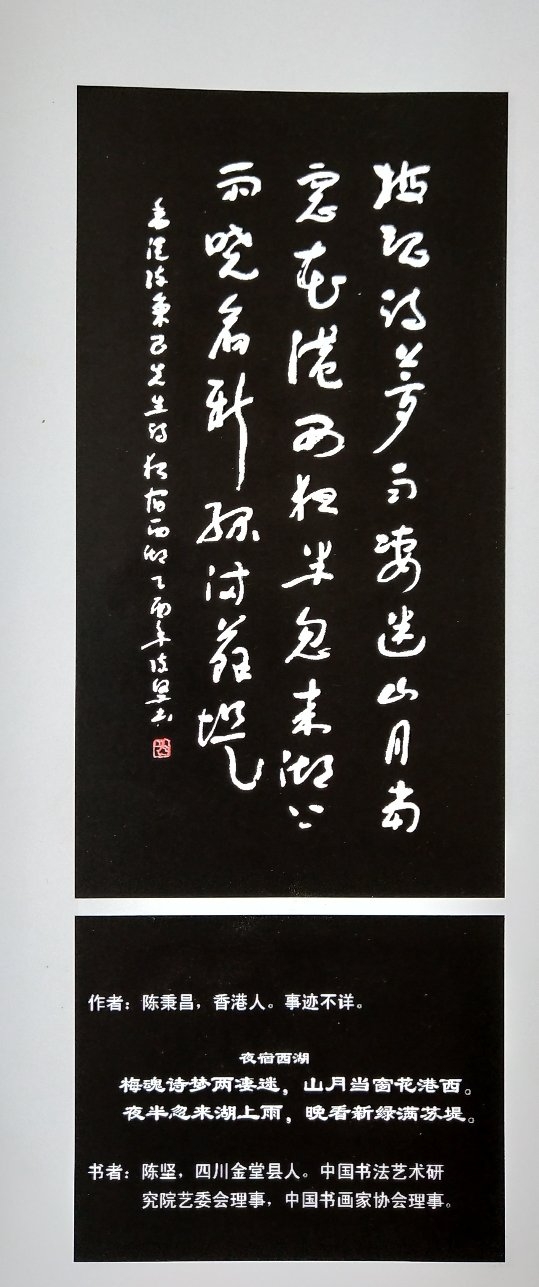 梅魂诗梦两凄迷山月当
窗花港西夜半忽来湖上
雨晓看新绿满苏堤
香港陈秉昌先生诗夜宿西湖乙酉年陈坚书
作者：陈秉昌，香港人。事迹不详。
夜宿西湖
梅魂诗梦两凄迷，山月当窗花港西。
夜半忽来湖上雨，晚看新绿满苏堤。
书者：陈坚，四川金堂县人。中国书法艺术研
究院艺委会理事，中国书画家协会理事。